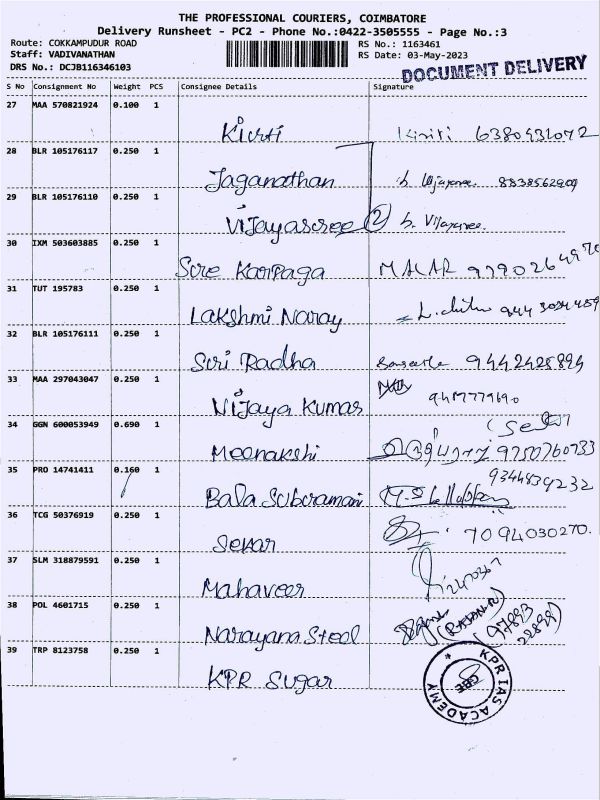 THE PROFESSIONAL COURIERS, COIMBATORE
Delivery Runsheet - PC2 - Phone No.:0422-3505555 - Page No.:3
Route: COKKAMPUDUR ROAD RS No.: 1163461
Staff: VADIVANATHAN RS Date: 03-May-2023
DRS No.: DCJB116346103 DOCUMENT DELIVERY
S No Consignment No Weight PCS Consignee Details Signature
27 MAA 570821924 0.100 1
Kirrti 6380431072
28 BLR 105176117 0.250 1
Jaganathan 8838562909
29 BLR 105176110 0.250 1
Vijayasree 2
30 IXM 503603885 0.250 1
Sree Karpaga MALAR
31 TUT 195783 0.250 1
Lakshmi Naray
32 BLR 105176111 0.250 1
Siri Radha 9442428894
33 MAA 297043047 0.250 1
Vijaya Kumar
34 GGN 600053949 0.690 1
Meenakshi 9750760733
35 PRO 14741411 0.160 1 9344839232
Bala Subramani
36 TCG 50376919 0.250 1
Sekar 7094030270.
37 SLM 318879591 0.250 1
Mahaveer
38 POL 4601715 0.250 1
Narayana Steel
39 TRP 8123758 0.250 1
KPR Sugar
KPR IAS ACADEMY